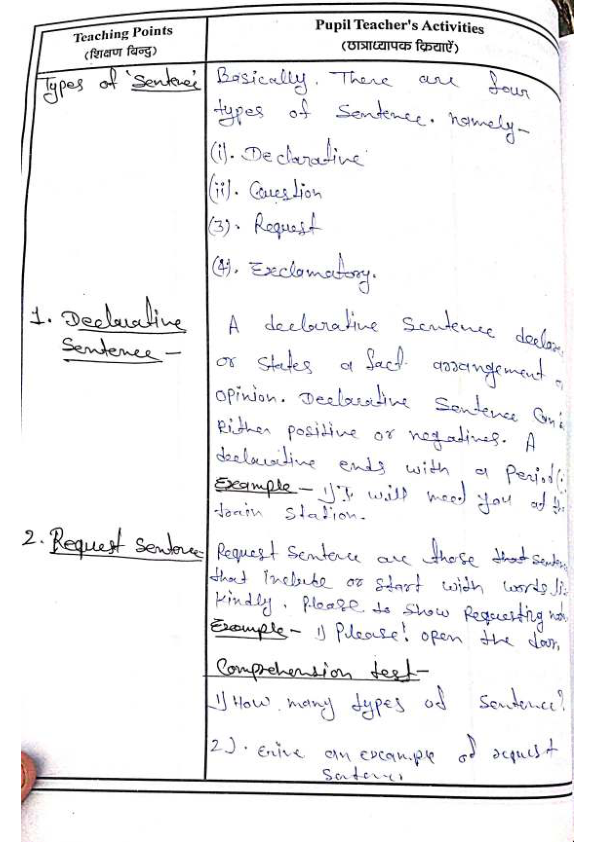 Teaching Points
(शिक्षण बिन्दु)
Pupil Teacher's Activities
(छात्राध्यापक क्रियाएँ)
Types of 'Sentence'
Basically. There are four
types of Sentence. namely-
(i). Declarative
(ii). Question
(3). Request
(4). Exclamatory.
1. Declarative
Sentence -
A declarative Sentence declare
or states a fact arrangement
opinion. Declarative Sentence
Either positive or negatives. A
declaraitive ends with a Period(.
Example - 1) I will meed you at the
train station.
2. Request Sentence
Request Sentence are those that senten
that Include or start with words li
Kindly. Please to show Requesting
Example - 1) Please! open the door,
Comprehension test-
1) How many types of Sentence?
2). Give an example of request
Sentence